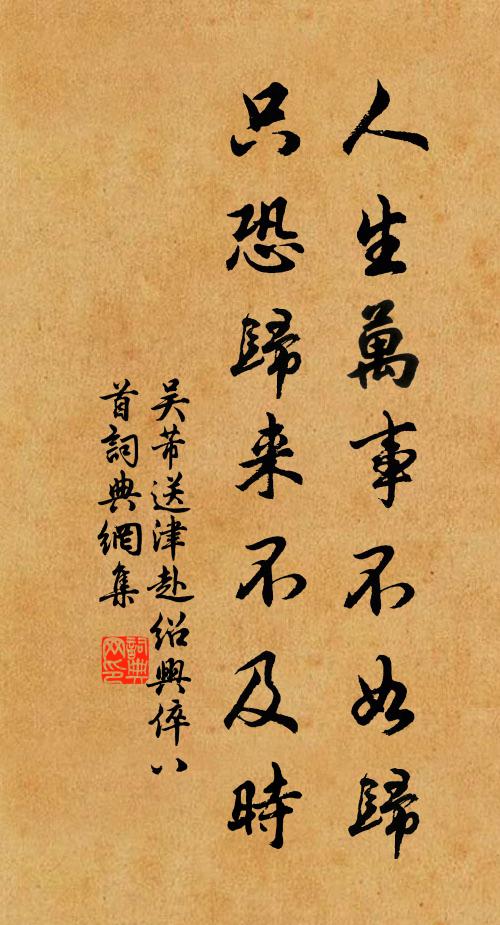 人生萬事不如歸
只恐歸来不及時
吴芾送津赴绍興倅八
首詞典網集
詞典网印